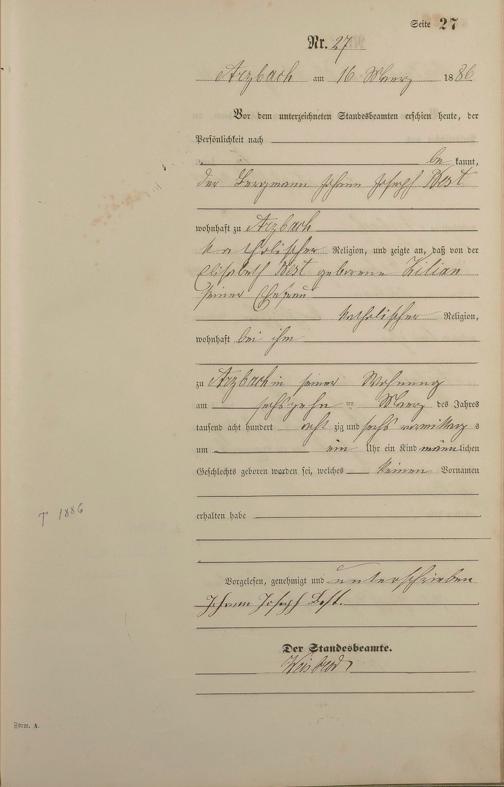 Seite 27
Nr. 27
Arzbach am 16 Maerz 1886
Vor dem unterzeichneten Standesbeamten erschien heute, der
Persönlichkeit nach
be kannt,
der Bergmann Johann Joseph Best
wohnhaft zu Arzbach
katholischer Religion, und zeigte an, daß von der
Elisabeth Best geborene Kilian
seiner Ehefrau
katholischer Religion,
wohnhaft bei ihm
zu Arzbach in seiner Wohnung
am sechszehn = Maerz des Jahres
tausend acht hundert acht zig und sechs vormittag s
um ein Uhr ein Kind männlichen
Geschlechts geboren worden sei, welches keinen Vornamen
erhalten habe
† 1886
Vorgelesen, genehmigt und unterschrieben
Johann Joseph Best.
Der Standesbeamte.
Form. A.